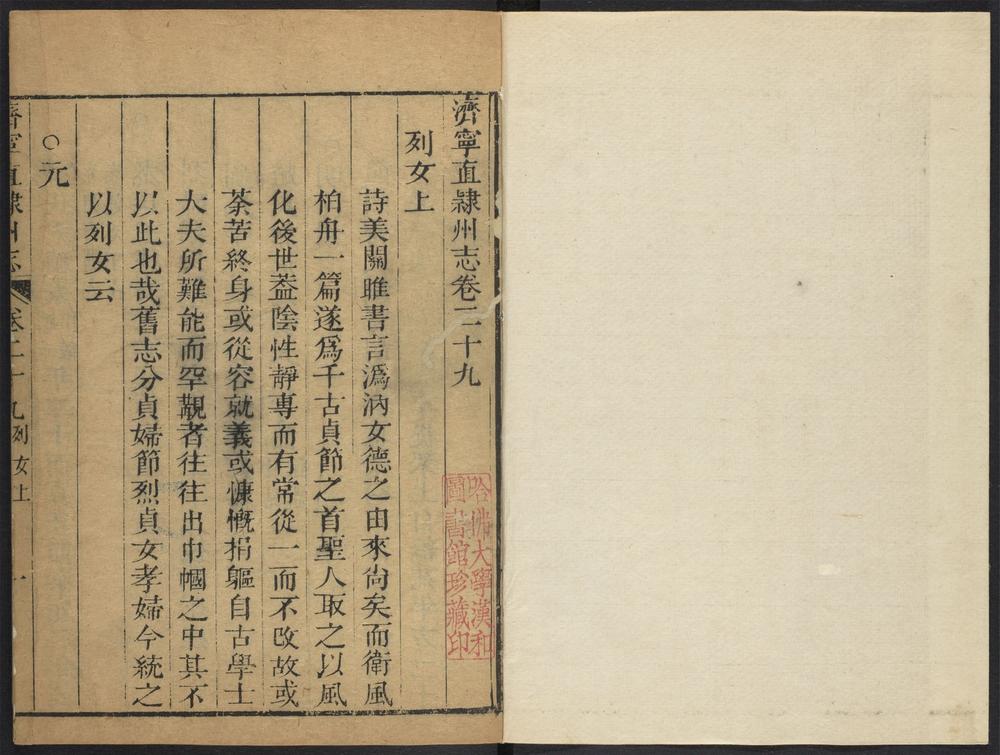 濟寧直隸州志卷二十九
列女上
詩美關雎書言溈汭女德之由來尙矣而衛風
柏舟一篇遂爲千古貞節之首聖人取之以風
化後世葢陰性靜專而有常從一而不改故或
荼苦終身或從容就義或慷慨捐軀自古學士
大夫所難能而罕覯者往往出巾幗之中其不
以此也哉舊志分貞婦節烈貞女孝婦今統之
以列女云
○元
濟寧直隸州志 卷二十九 列女上 一
哈佛大學漢和
圖書館珍藏印